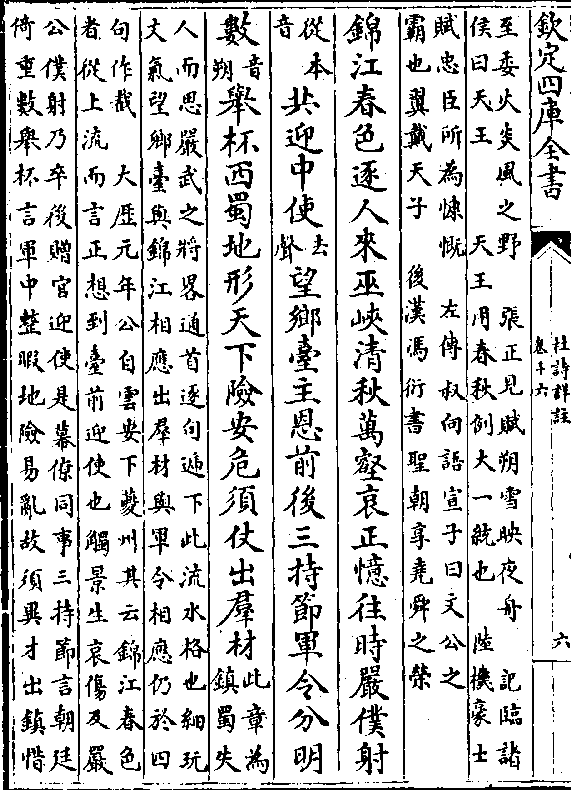 欽定四庫全書
杜詩詳註
卷十六
六
至委火炎風之野　張正見賦朔雪映夜舟　記臨諸
侯曰天王　天王用春秋例大一統也　陸機豪士
賦忠臣所為慷慨　左傳叔向語宣子曰文公之
霸也翼戴天子　後漢馮衍書聖朝享堯舜之榮
錦江春色逐人來巫峽清秋萬壑哀正憶往時嚴僕射
從本音共迎中使去聲望鄉臺主恩前後三持節軍令分明
數音朔舉杯西蜀地形天下險安危須仗出羣材此章為鎮蜀失
人而思嚴武之將畧通首逐句遞下此流水格也細玩
文氣望鄉臺與錦江相應出羣材與軍令相應仍於四
句作截　大歴元年公自雲安下夔州其云錦江春色
者從上流而言正想到臺前迎使也觸景生哀傷及嚴
公僕射乃卒後贈官迎使是幕僚同事三持節言朝廷
倚重數舉杯言軍中整暇地險易亂故須異才出鎮惜